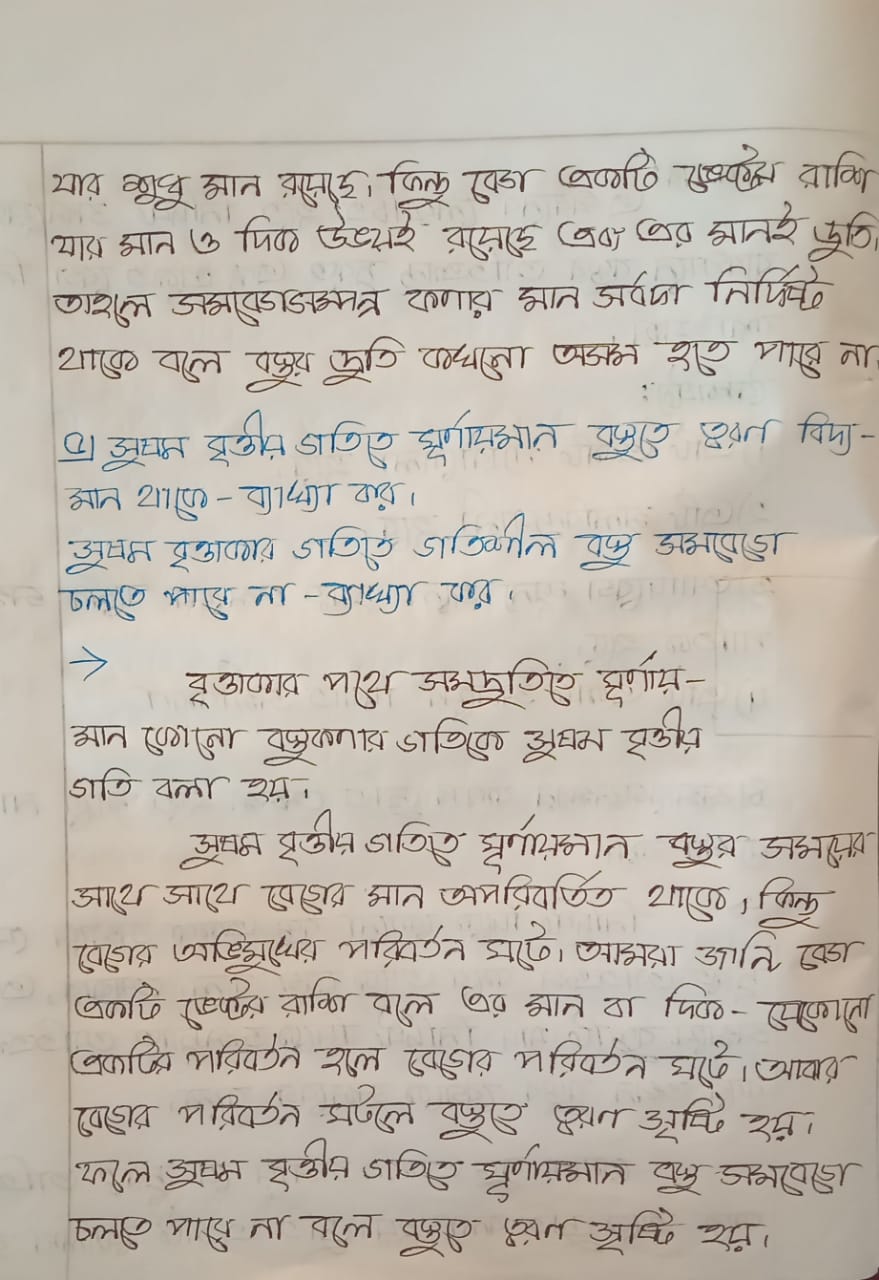 যার শুধু মান রয়েছে। কিন্তু বেগ একটি ভেক্টর রাশি
যার মান ও দিক উভয়ই রয়েছে এবং এর মানই দ্রুতি।
তাহলে সমবেগসম্পন্ন কণার মান সর্বদা নির্দিষ্ট
থাকে বলে বস্তুর দ্রুতি কখনো অসম হতে পারে না।
সুষম বৃত্তীয় গতিতে ঘূর্ণায়মান বস্তুতে ত্বরণ বিদ্য-
মান থাকে - ব্যাখ্যা কর।
সুষম বৃত্তাকার গতিতে গতিশীল বস্তু সমবেগে
চলতে পারে না - ব্যাখ্যা কর।
→
বৃত্তাকার পথে সমদ্রুতিতে ঘূর্ণায়-
মান কোনো বস্তুকণার গতিকে সুষম বৃত্তীয়
গতি বলা হয়।
সুষম বৃত্তীয় গতিতে ঘূর্ণায়মান বস্তুর সময়ের
সাথে সাথে বেগের মান অপরিবর্তিত থাকে, কিন্তু
বেগের অভিমুখের পরিবর্তন ঘটে। আমরা জানি, বেগ
একটি ভেক্টর রাশি বলে এর মান বা দিক- যেকোনো
একটির পরিবর্তন হলে বেগের পরিবর্তন ঘটে। আবার
বেগের পরিবর্তন ঘটলে বস্তুতে ত্বরণ সৃষ্টি হয়।
ফলে সুষম বৃত্তীয় গতিতে ঘূর্ণায়মান বস্তু সমবেগে
চলতে পারে না বলে বস্তুতে ত্বরণ সৃষ্টি হয়।